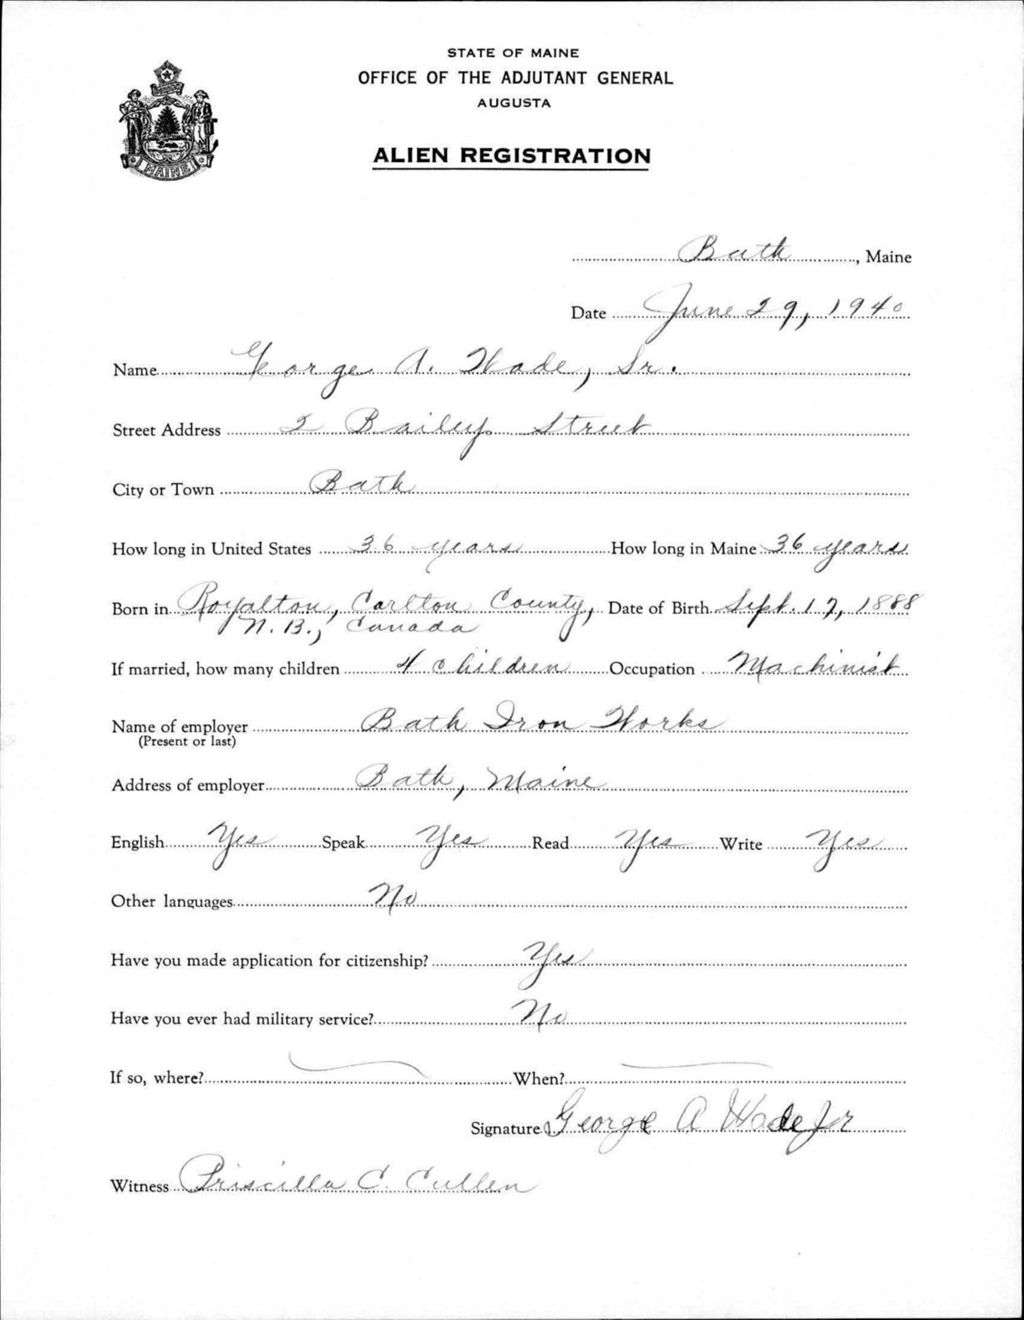 STATE OF MAINE
OFFICE OF THE ADJUTANT GENERAL
AUGUSTA
MAINE
ALIEN REGISTRATION
Bath, Maine
Date June 29, 1940
Name George A. Wade, Sr.
Street Address 2 Bailey Street
City or Town Bath
How long in United States 36 years How long in Maine 36 years
Born in Royalton, Carlton County, Date of Birth Sept. 17, 1888
N.B., Canada
If married, how many children 4 children Occupation Machinist
Name of employer Bath Iron Works
(Present or last)
Address of employer Bath, Maine
English Yes Speak Yes Read Yes Write Yes
Other languages No
Have you made application for citizenship? Yes
Have you ever had military service? No
If so, where? When?
Signature George A Wade
Witness Priscilla C. Cullen